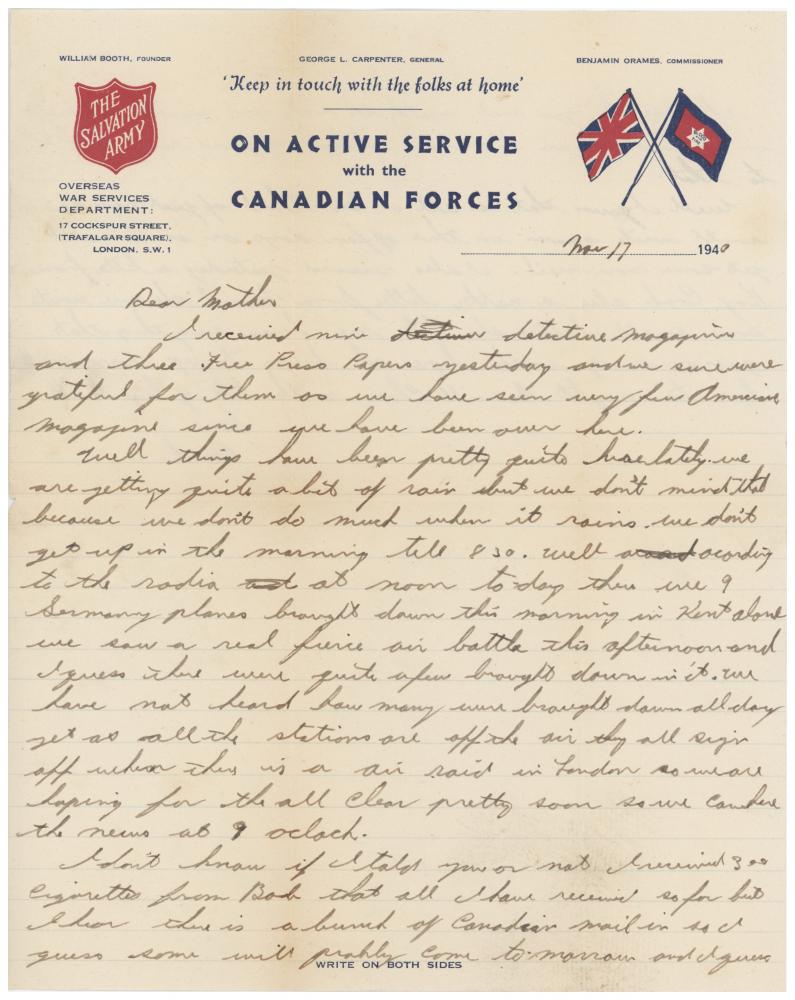 WILLIAM BOOTH, FOUNDER
GEORGE L. CARPENTER, GENERAL
BENJAMIN ORAMES, COMMISSIONER
'Keep in touch with the folks at home'
THE
SALVATION
ARMY
ON ACTIVE SERVICE
with the
CANADIAN FORCES
OVERSEAS
WAR SERVICES
DEPARTMENT:
17 COCKSPUR STREET,
(TRAFALGAR SQUARE),
LONDON. S.W.1
Nov 17 1940
Dear Mother
I received nine detective magazine
and three Free Press Papers yesterday and we sure were
grateful for them as we have seen very few American
magazine since we have been over here.
Well things have been pretty quite here lately. we
are getting quite a bit of rain but we don't mind that
because we don't do much when it rains. we don't
get up in the morning till 830. well acording
to the radio at noon to-day there were 9
Germany planes brought down this morning in Kent alone
we saw a real fierce air battle this afternoon and
I guess there were quite a few brought down in it. we
have not heard how many were brought down all day
yet as all the stations are off the air they all sign
off when there is a air raid in London so we are
hoping for the all clear pretty soon so we can here
the news at 9 oclock.
I don't know if I told you or not I received 300
cigarettes from Bob that all I have received so far but
I hear there is a bunch of Canadian mail in so I
guess some will prably come to-morrow and I guess
WRITE ON BOTH SIDES